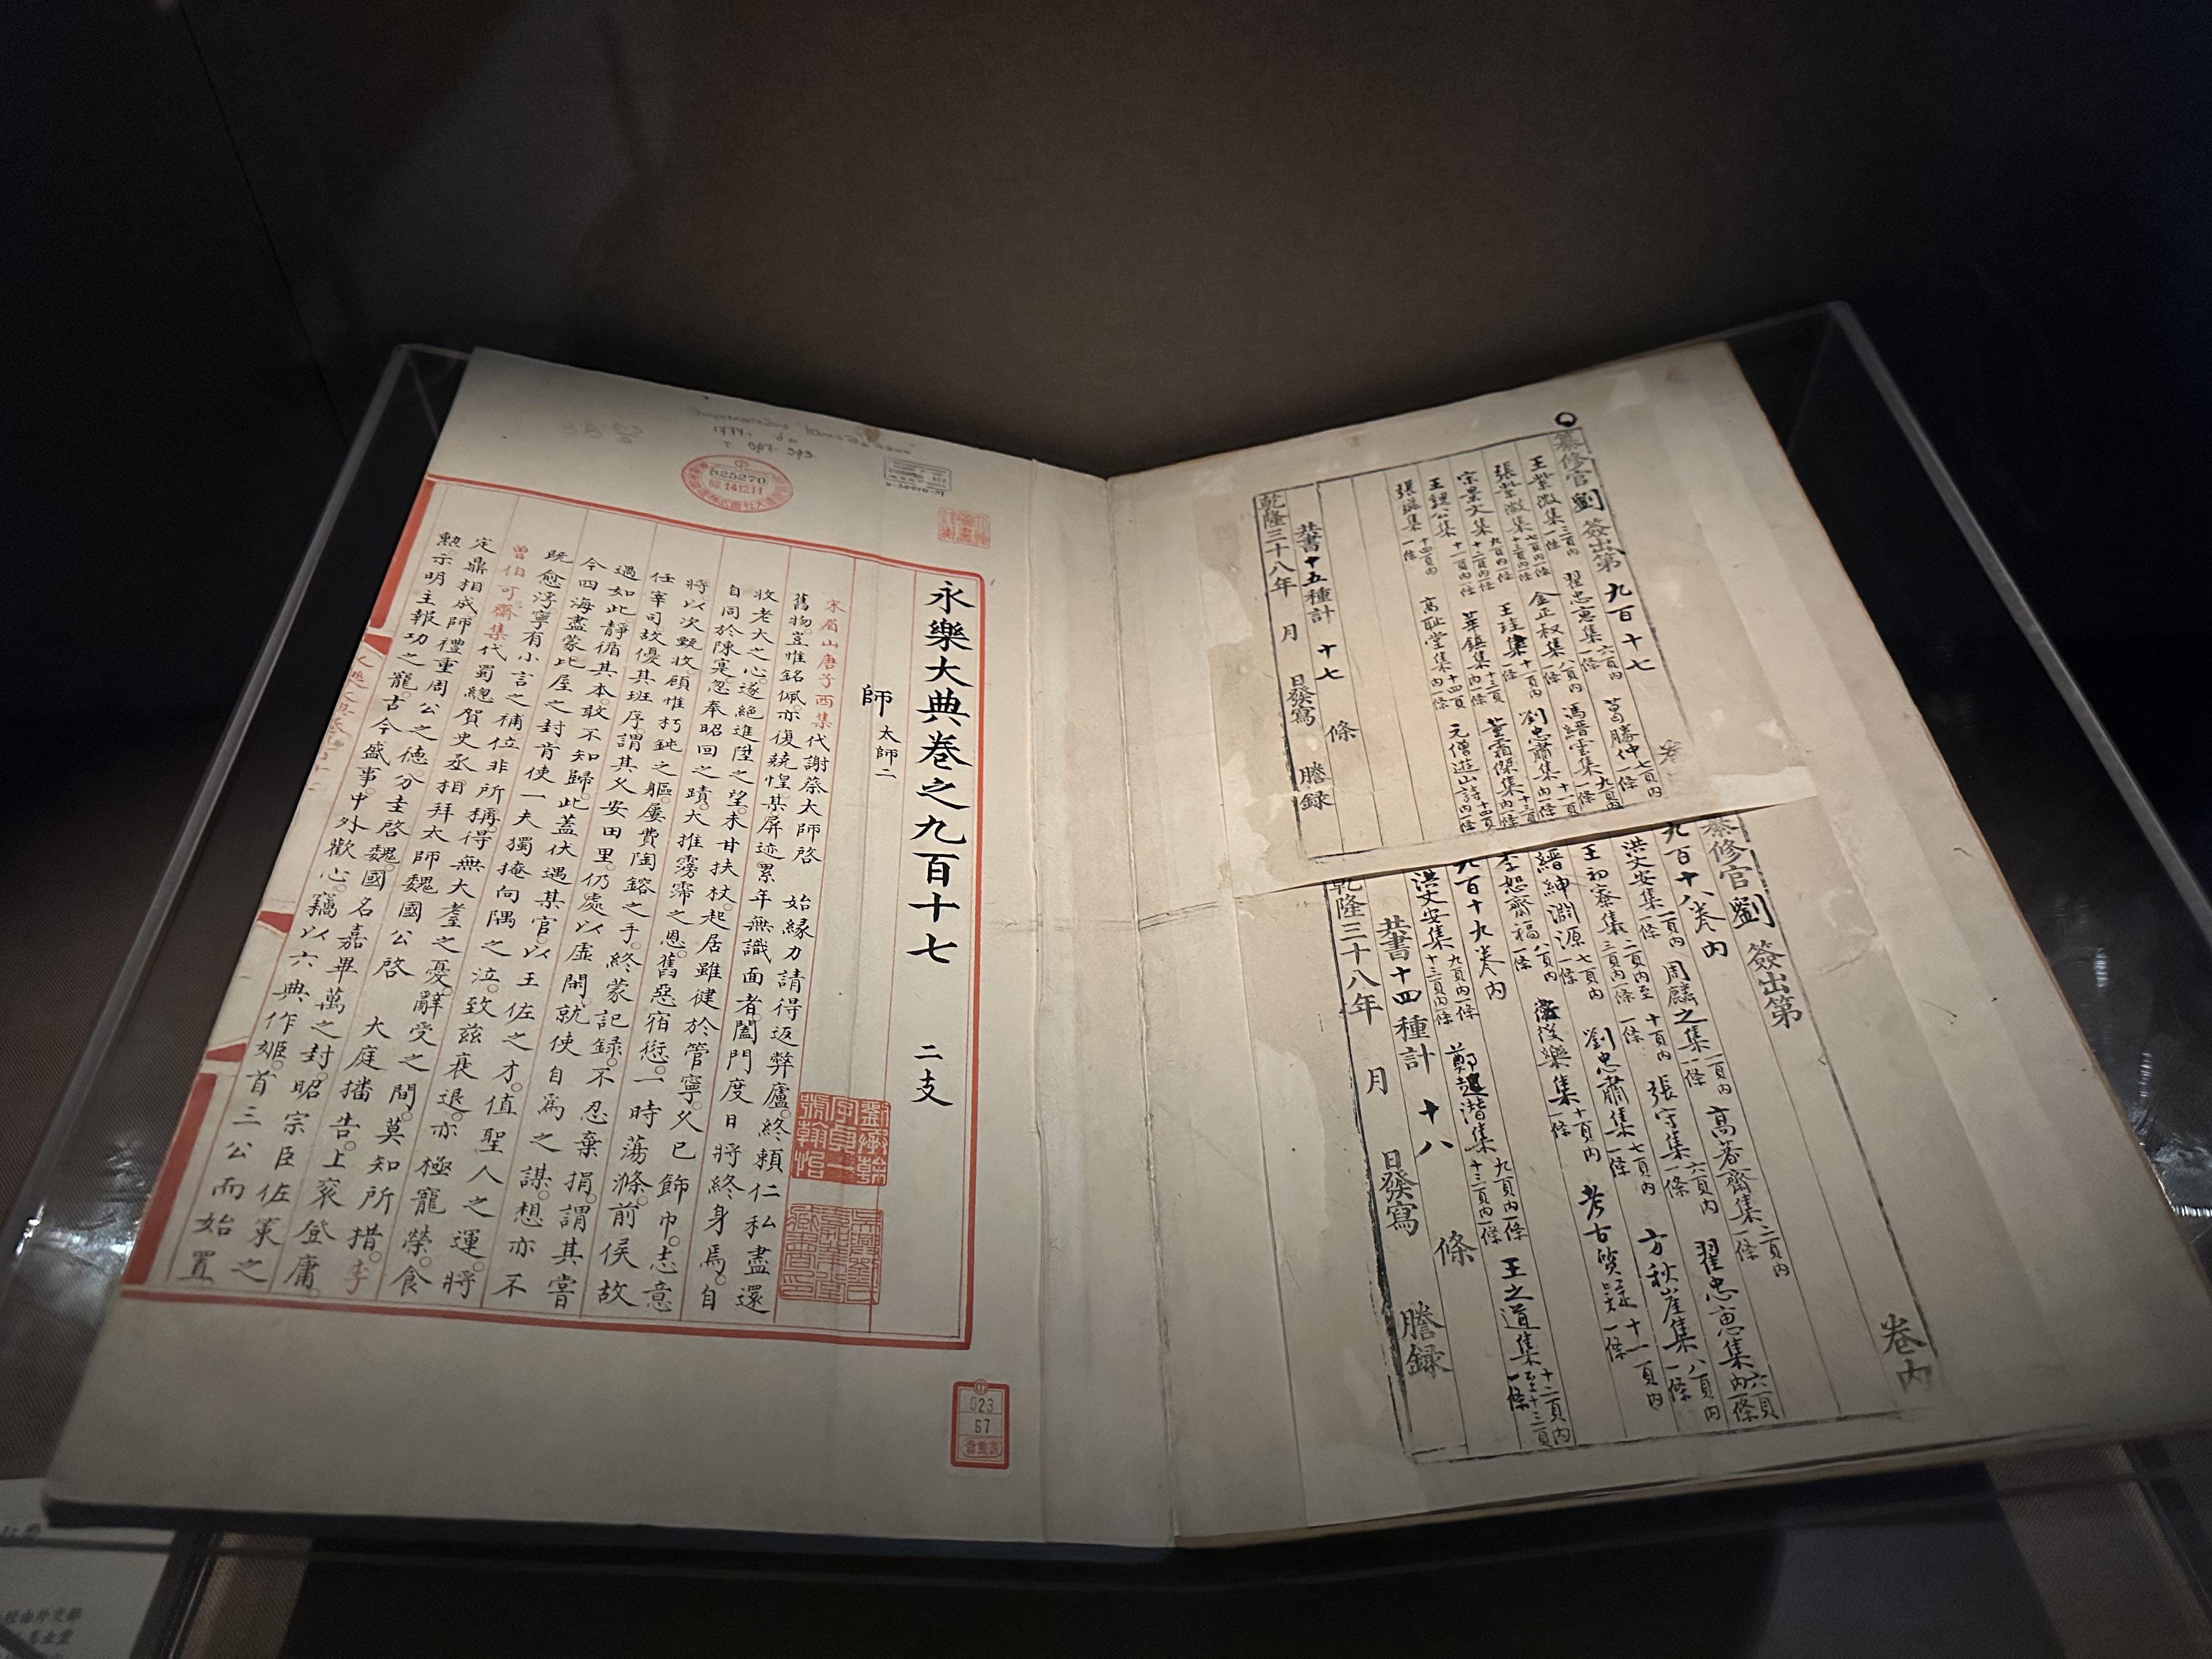 纂修官劉 簽出第 九百十七
王紫微集 三頁內一條 翟忠惠集 六頁內一條 葛勝仲 七頁內一條
張紫微集 金正叔集 八頁內一條 馮縉雲集
宋景文集 王珪集 十一頁內一條 劉忠肅集
王魏公集 十一頁內一條 華鎮集 十三頁內一條 董霜傑集 十四頁內一條
張集 十四頁內一條 高恥堂集 十四頁內一條 元僧遊山詩 內一條
共書十五種計 十七 條
乾隆三十八年 月 日發寫 謄錄
纂修官劉 簽出第 卷內
九百十八卷內
洪文安集 一頁內一條 周麟之集 一頁內一條 高峯齋集 二頁內一條
王初寮集 二頁內至三頁內一條 張守集 六頁內一條 翟忠惠集 六頁內一條
縉紳淵源 七頁內一條 劉忠肅集 七頁內一條 方秋崖集 八頁內一條
李恕齋福 八頁內一條 樂集 十頁內一條 考古質疑 十一頁內一條
九百十九卷內
洪文安集 九頁內一條 鄭超潛集 九頁內一條 王之道集 十二頁內至十三頁內一條
共書十四種計 十八 條
乾隆三十八年 月 日發寫 謄錄
永樂大典卷之九百十七 二支
師 太師二
宋眉山唐子西集代謝蔡太師啓 始緣力請得返弊廬終賴仁私盡還
舊物豈惟銘佩亦復兢惶某屏迹累年無識面者闔門度日將終身焉自
收老大之心遂絕進陞之望未甘扶杖起居雖健於管寧久已飾巾志意
自同於陳寔忽奉昭回之蹟大推霶霈之恩舊惡宿愆一時蕩滌前侯故
將以次甄收顧惟朽鈍之軀屢費陶鎔之手終蒙記錄不忍棄捐謂其嘗
任宰司故優其班序謂其久安田里仍處以虛閒就使自為之謀想亦不
過如此靜循其本敢不知歸此蓋伏遇某官以王佐之才值聖人之運將
今四海盡蒙比屋之封肯使一夫獨掩向隅之泣致茲衰退亦極寵榮食
既愈浮寧有小言之補位非所稱得無大耋之憂辭受之間莫知所措李
曾伯可齋集代蜀總賀史丞相拜太師魏國公啓 大庭播告上袞登庸
定鼎相成師禮重周公之德分圭啓魏國名嘉畢萬之封昭宗臣佐策之
勲示明主報功之寵古今盛事中外歡心竊以六典作姬首三公而始置
625270
023
67